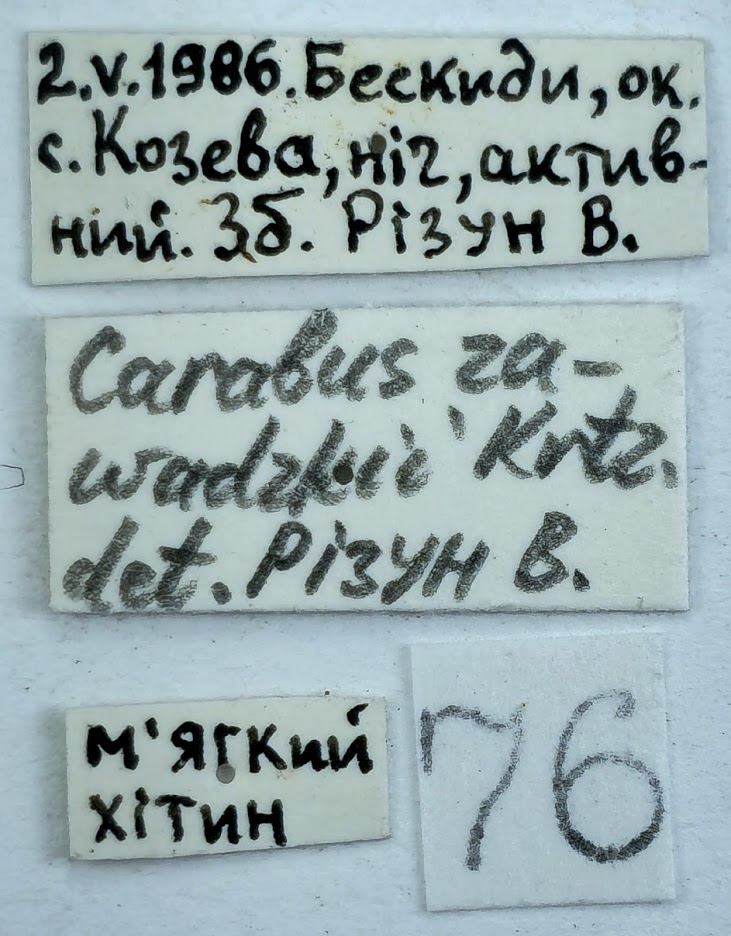 2.V.1986. Бескиди, ок.
с. Козева, ніч, актив-
ний. Зб. Різун В.
Carabus za-
wadzkii Krtz.
det. Різун В.
м'ягкий
хітин
76